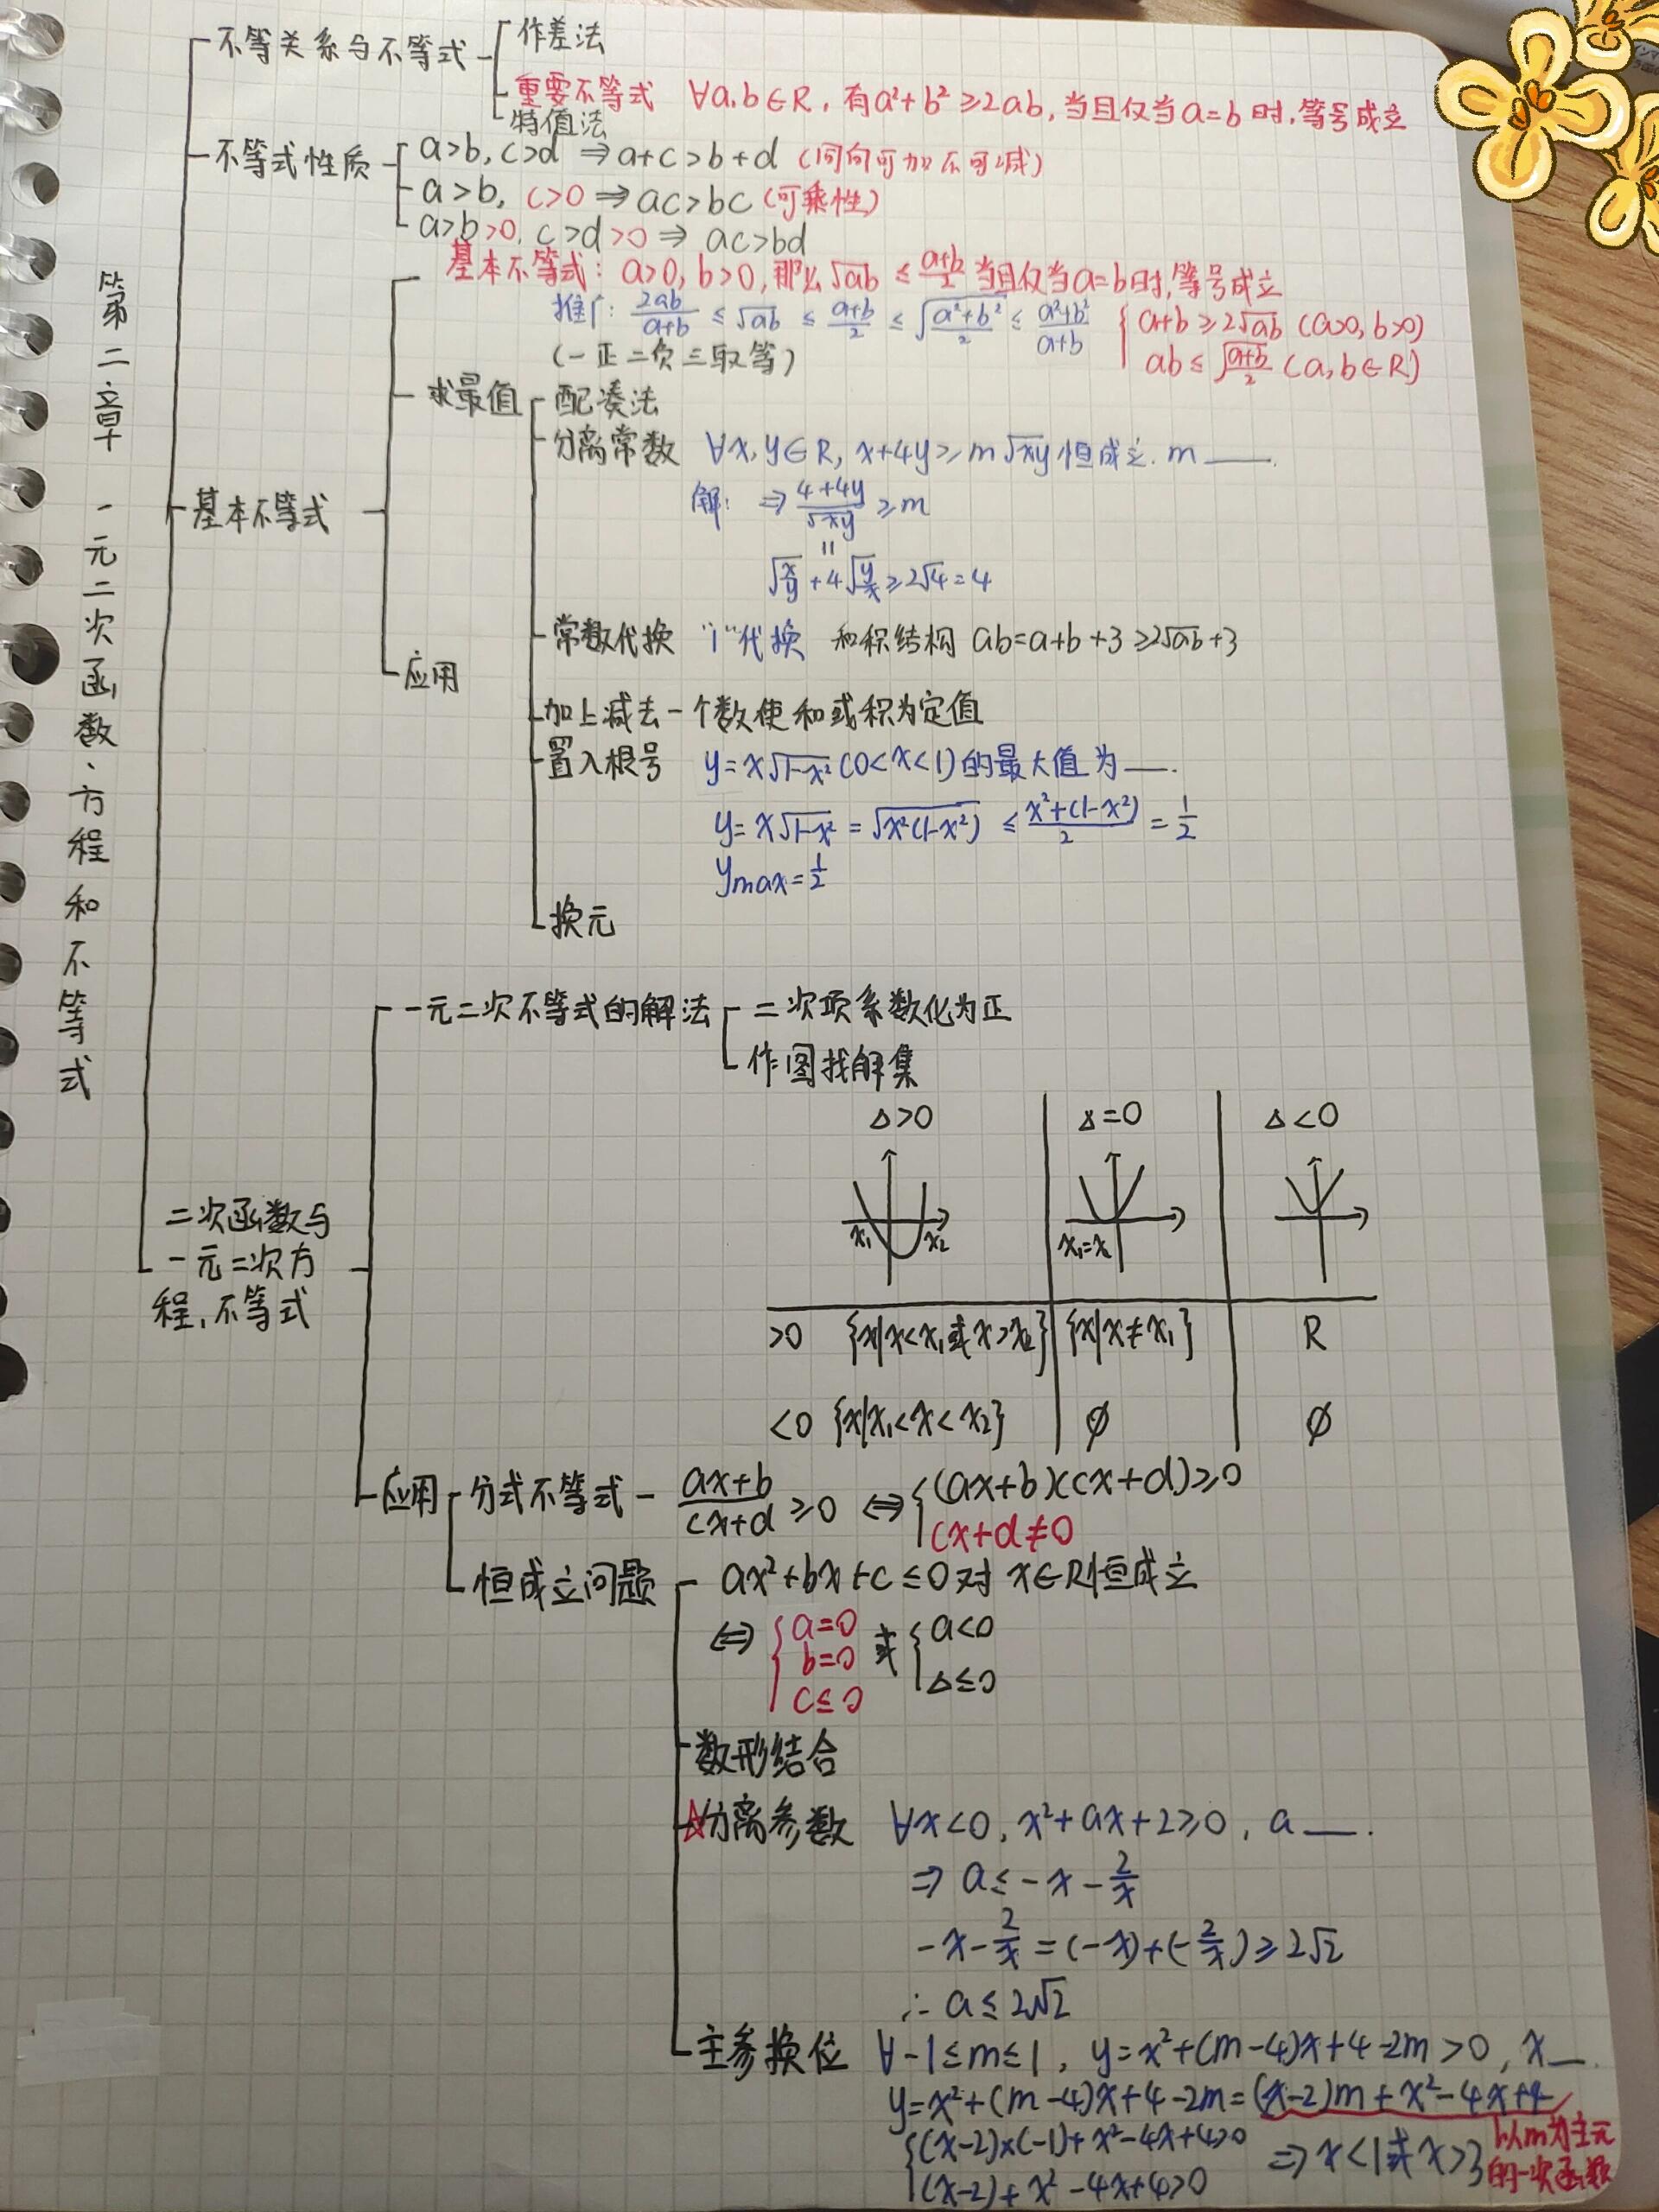 第二章 一元二次函数、方程和不等式
不等关系与不等式
作差法
重要不等式 ∀a,b∈R,有a²+b²≥2ab,当且仅当a=b时,等号成立
特值法
不等式性质
a>b,c>d⇒a+c>b+d(同向可加不可减)
a>b,c>0⇒ac>bc(可乘性)
a>b>0,c>d>0⇒ac>bd
基本不等式
基本不等式:a>0,b>0,那么√ab≤(a+b)/2当且仅当a=b时,等号成立
推广:2ab/(a+b)≤√ab≤(a+b)/2≤√((a²+b²)/2)≤(a²+b²)/(a+b)
{a+b≥2√ab(a>0,b>0)
ab≤√((a+b)/2)(a,b∈R)
(一正二负三取等)
求最值
配凑法
分离常数 ∀x,y∈R,x+4y≥m√xy恒成立.m___.
解:⇒(4+4y)/√xy≥m
=
√(x/y)+4√(y/x)≥2√4=4
常数代换 "1"代换 和积结构 ab=a+b+3≥2√ab+3
应用
加上减去一个数使和或积为定值
置入根号 y=x√(1-x²)(0<x<1)的最大值为___.
y=x√(1-x²)=√(x²(1-x²))≤(x²+(1-x²))/2=1/2
ymax=1/2
换元
二次函数与
一元二次方
程,不等式
一元二次不等式的解法
二次项系数化为正
作图找解集
Δ>0 Δ=0 Δ<0
x₁ x₂ x₁=x₂
>0 {x|x<x₁或x>x₂} {x|x≠x₁} R
<0 {x|x₁<x<x₂} ∅ ∅
应用
分式不等式 - (ax+b)/(cx+d)≥0⇔{(ax+b)(cx+d)≥0
cx+d≠0
恒成立问题
ax²+bx+c≤0对x∈R恒成立
⇔{a=0 或{a<0
b=0
c≤0 Δ≤0
数形结合
☆分离参数 ∀x<0,x²+ax+2≥0,a___.
⇒a≤-x-2/x
-x-2/x=(-x)+(-2/x)≥2√2
∴a≤2√2
主参换位 ∀-1≤m≤1,y=x²+(m-4)x+4-2m>0,x__.
y=x²+(m-4)x+4-2m=(x-2)m+x²-4x+4
{(x-2)×(-1)+x²-4x+4>0
(x-2)+x²-4x+4>0
⇒x<1或x>3
以m为主元
的一次函数